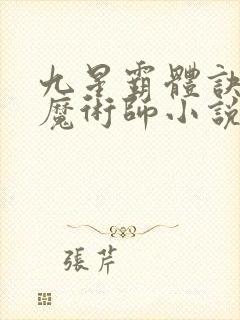 九星霸體訣
魔術師小說
張芹